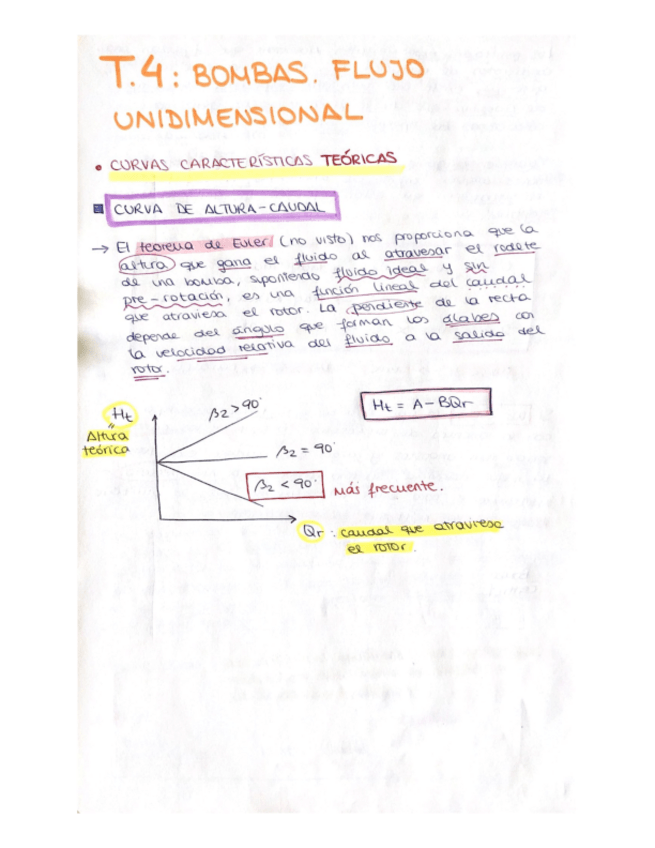 T.4: BOMBAS. FLUJO
UNIDIMENSIONAL
• CURVAS CARACTERÍSTICAS TEÓRICAS
CURVA DE ALTURA-CAUDAL
→ El teorema de Euler (no visto) nos proporciona que la
altura que gana el fluido al atravesar el rodete
de una bomba, suponiendo fluido ideal y sin
pre-rotación, es una función lineal del caudal
que atraviesa el rotor. La pendiente de la recta
depende del ángulo que forman los álabes con
la velocidad relativa del fluido a la salida del
rotor.
Ht
"
Altura
teórica
β2 > 90°
β2 = 90°
β2 < 90° Más frecuente.
Ht = A - BQr
Qr : caudal que atraviesa
el rotor.